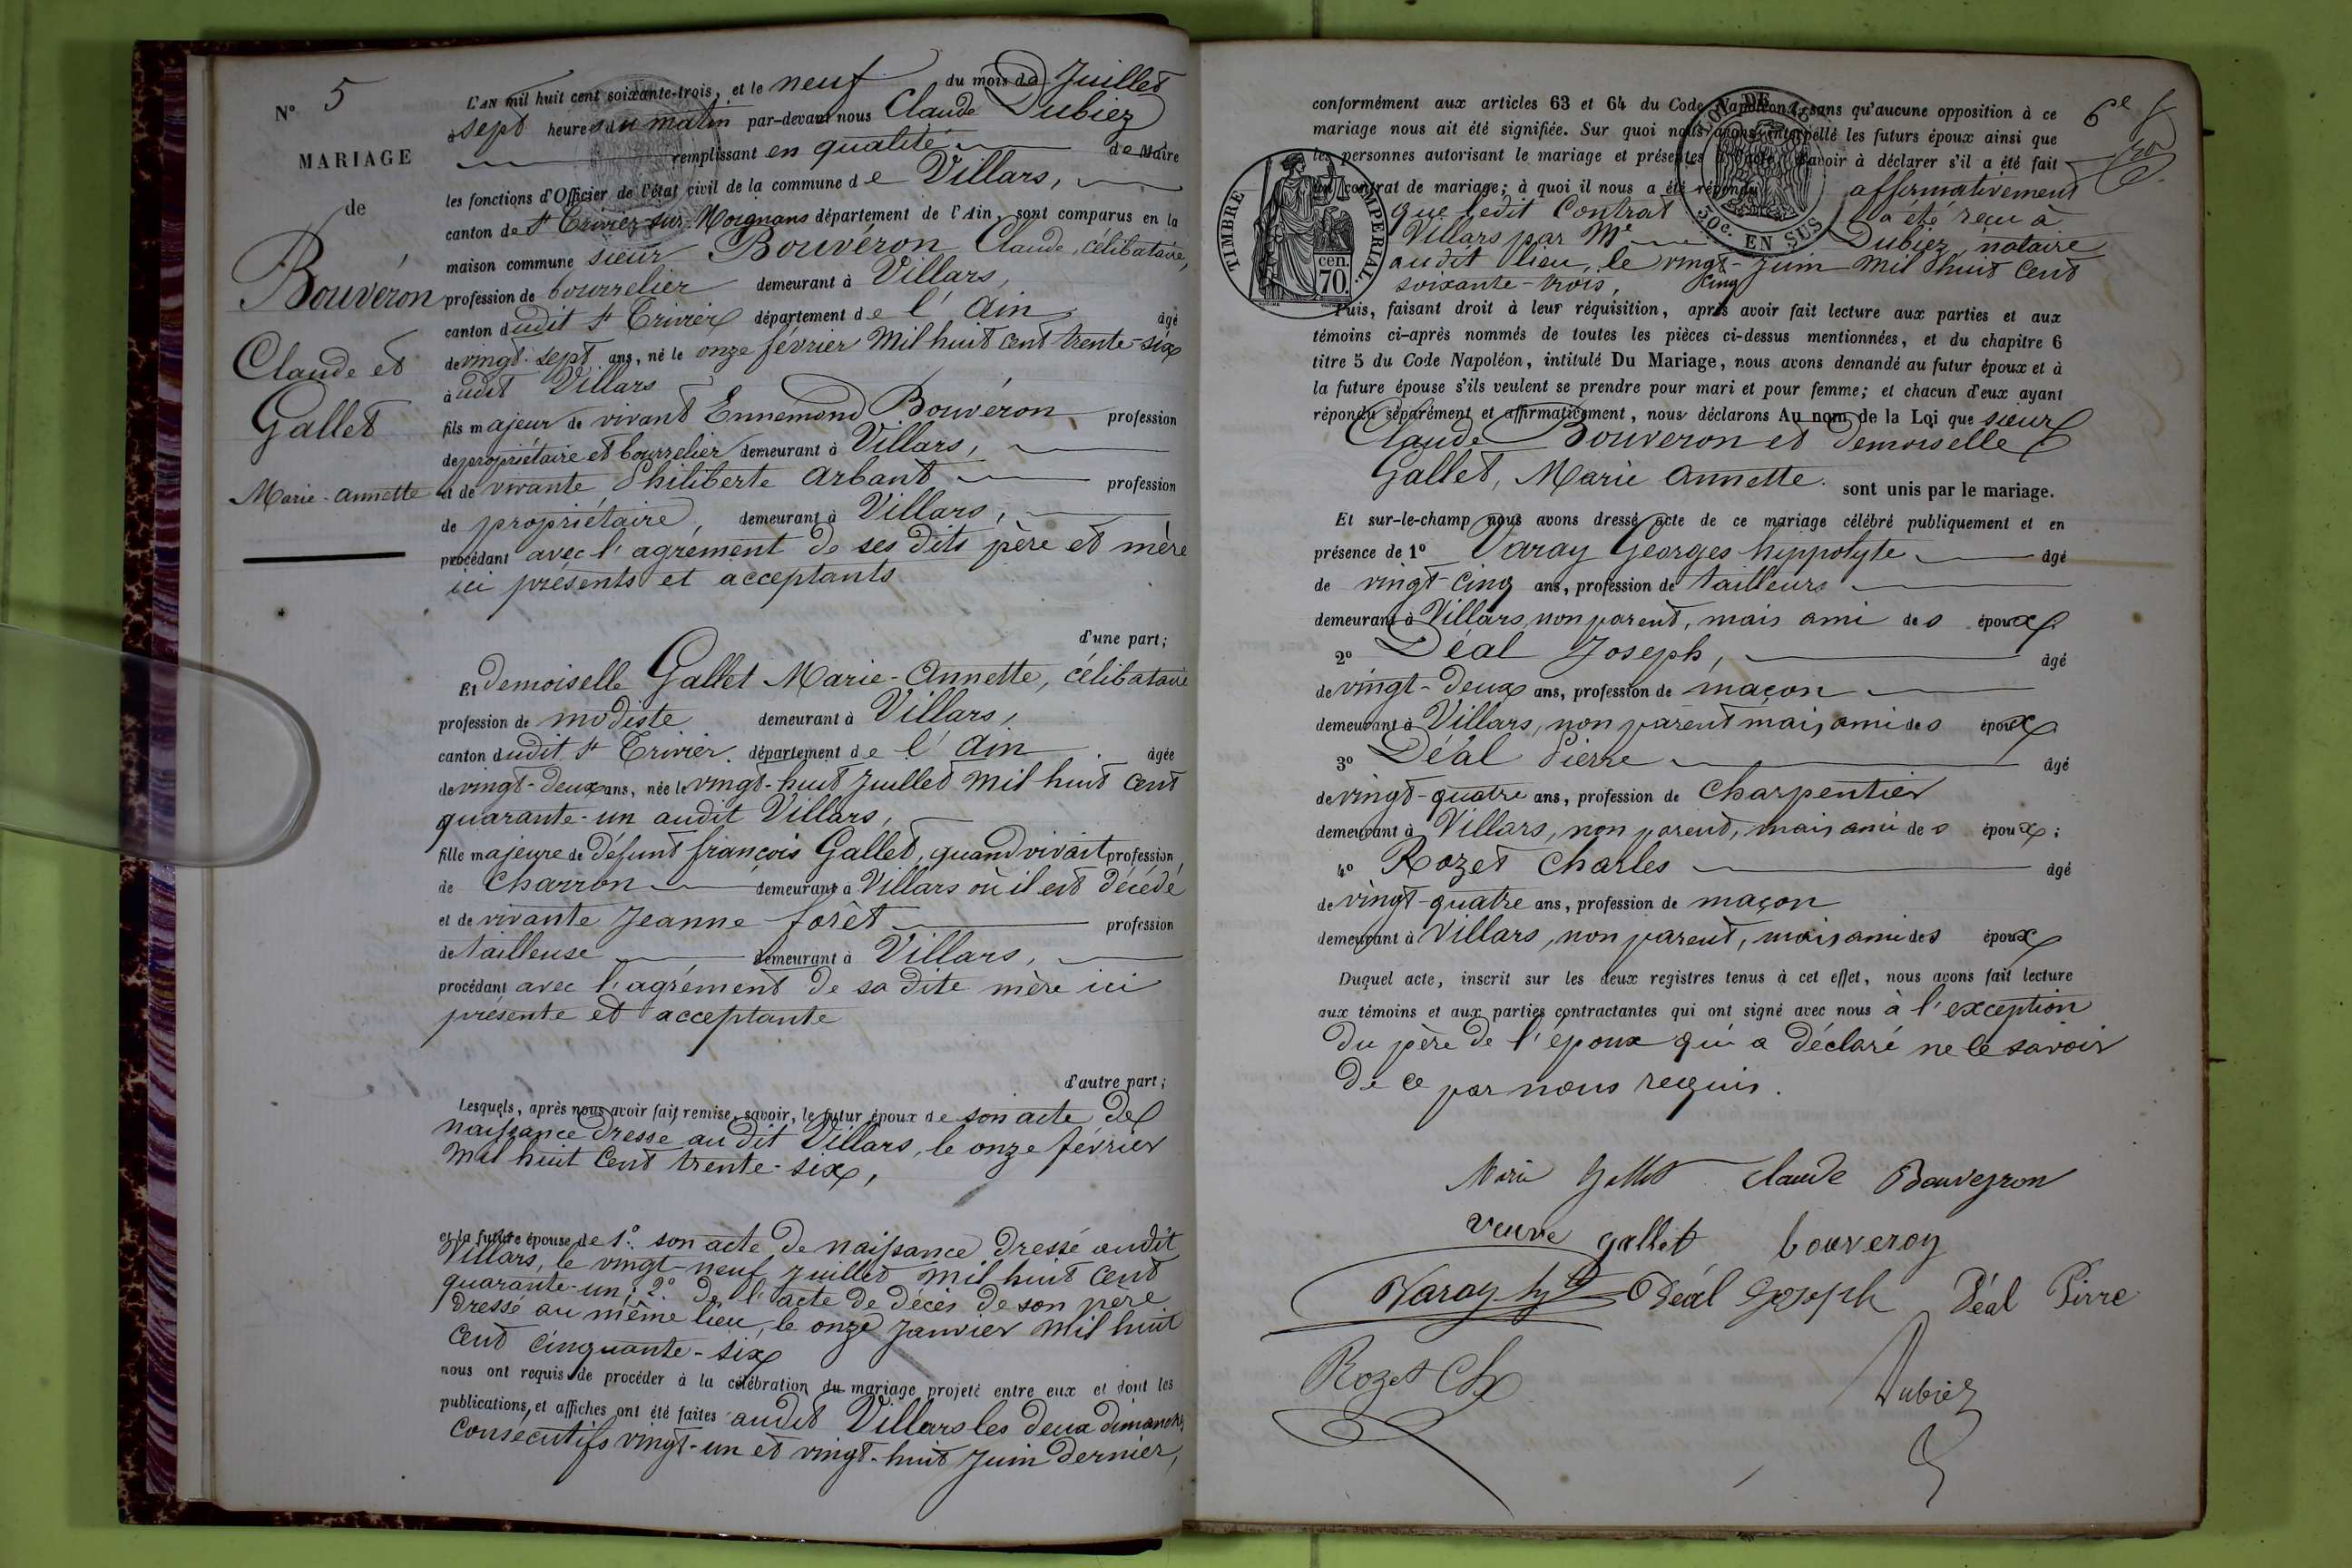 N° 5
MARIAGE
de
Bouvéron
Claude et
Gallet
Marie-Annette
L'AN mil huit cent soixante-trois, et le neuf du mois de Juillet
à sept heures du matin par-devant nous Claude Dubiez
remplissant en qualité de Maire
les fonctions d'Officier de l'état civil de la commune de Villars,
canton de St Trivier-sur-Moignans département de l'Ain, sont comparus en la
maison commune sieur Bouvéron Claude, célibataire,
profession de bourrelier demeurant à Villars,
canton dudit St Trivier département de l'Ain âgé
de vingt-sept ans, né le onze février mil huit cent trente-six
audit Villars
fils majeur de vivant Ennemond Bouvéron, profession
de propriétaire et bourrelier demeurant à Villars,
et de vivante Philiberte Arbant profession
de propriétaire, demeurant à Villars,
procédant avec l'agrément de ses dits père et mère
ici présents et acceptants
d'une part;
Et demoiselle Gallet Marie-Annette, célibataire
profession de modiste demeurant à Villars,
canton dudit St Trivier. département de l'Ain âgée
de vingt-deux ans, née le vingt-huit juillet mil huit cent
quarante-un audit Villars,
fille majeure de défunt françois Gallet, quand vivait profession
de Charron demeurant à Villars où il est décédé
et de vivante Jeanne forêt profession
de tailleuse demeurant à Villars,
procédant avec l'agrément de sa dite mère ici
présente et acceptante
d'autre part;
Lesquels, après nous avoir fait remise, savoir, le futur époux de son acte de
naissance dressé au dit Villars, le onze février
mil huit cent trente-six,
et la future épouse de 1° son acte de naissance dressé audit
Villars, le vingt-neuf juillet mil huit cent
quarante-un; 2° de l'acte de décès de son père
dressé au même lieu, le onze janvier mil huit
cent cinquante-six
nous ont requis de procéder à la célébration du mariage projeté entre eux et dont les
publications, et affiches ont été faites audit Villars les deux dimanches
consécutifs vingt-un et vingt-huit juin dernier,
conformément aux articles 63 et 64 du Code Napoléon, sans qu'aucune opposition à ce
mariage nous ait été signifiée. Sur quoi nous avons interpellé les futurs époux ainsi que
les personnes autorisant le mariage et présentes à l'acte, d'avoir à déclarer s'il a été fait
un contrat de mariage; à quoi il nous a été répondu affirmativement
que ledit Contrat a été reçu à
Villars par Me Dubiez, notaire
audit lieu, le vingt-cinq juin mil huit cent
soixante-trois,
TIMBRE IMPERIAL
cen.
70.
50c. EN SUS
6e f
Puis, faisant droit à leur réquisition, après avoir fait lecture aux parties et aux
témoins ci-après nommés de toutes les pièces ci-dessus mentionnées, et du chapitre 6
titre 5 du Code Napoléon, intitulé Du Mariage, nous avons demandé au futur époux et à
la future épouse s'ils veulent se prendre pour mari et pour femme; et chacun d'eux ayant
répondu séparément et affirmativement, nous déclarons Au nom de la Loi que sieur
Claude Bouveron et Demoiselle
Gallet, Marie Annette. sont unis par le mariage.
Et sur-le-champ nous avons dressé acte de ce mariage célébré publiquement et en
présence de 1° Varay Georges hippolyte âgé
de vingt-cinq ans, profession de tailleurs
demeurant à Villars, non parent, mais ami des époux
2° Déal Joseph, âgé
de vingt-deux ans, profession de maçon
demeurant à Villars, non parent mais ami des époux
3° Déal Pierre âgé
de vingt-quatre ans, profession de Charpentier
demeurant à Villars, non parent, mais ami des époux;
4° Rozet Charles âgé
de vingt-quatre ans, profession de maçon
demeurant à Villars, non parent, mais ami des époux
Duquel acte, inscrit sur les deux registres tenus à cet effet, nous avons fait lecture
aux témoins et aux parties contractantes qui ont signé avec nous à l'exception
du père de l'époux qui a déclaré ne le savoir
de ce par nous requis.
Marie Gallet Claude Bouveyron
veuve gallet bouveron
Varay hyte Déal Joseph Déal Pirre
Rozet Ch
Dubiez